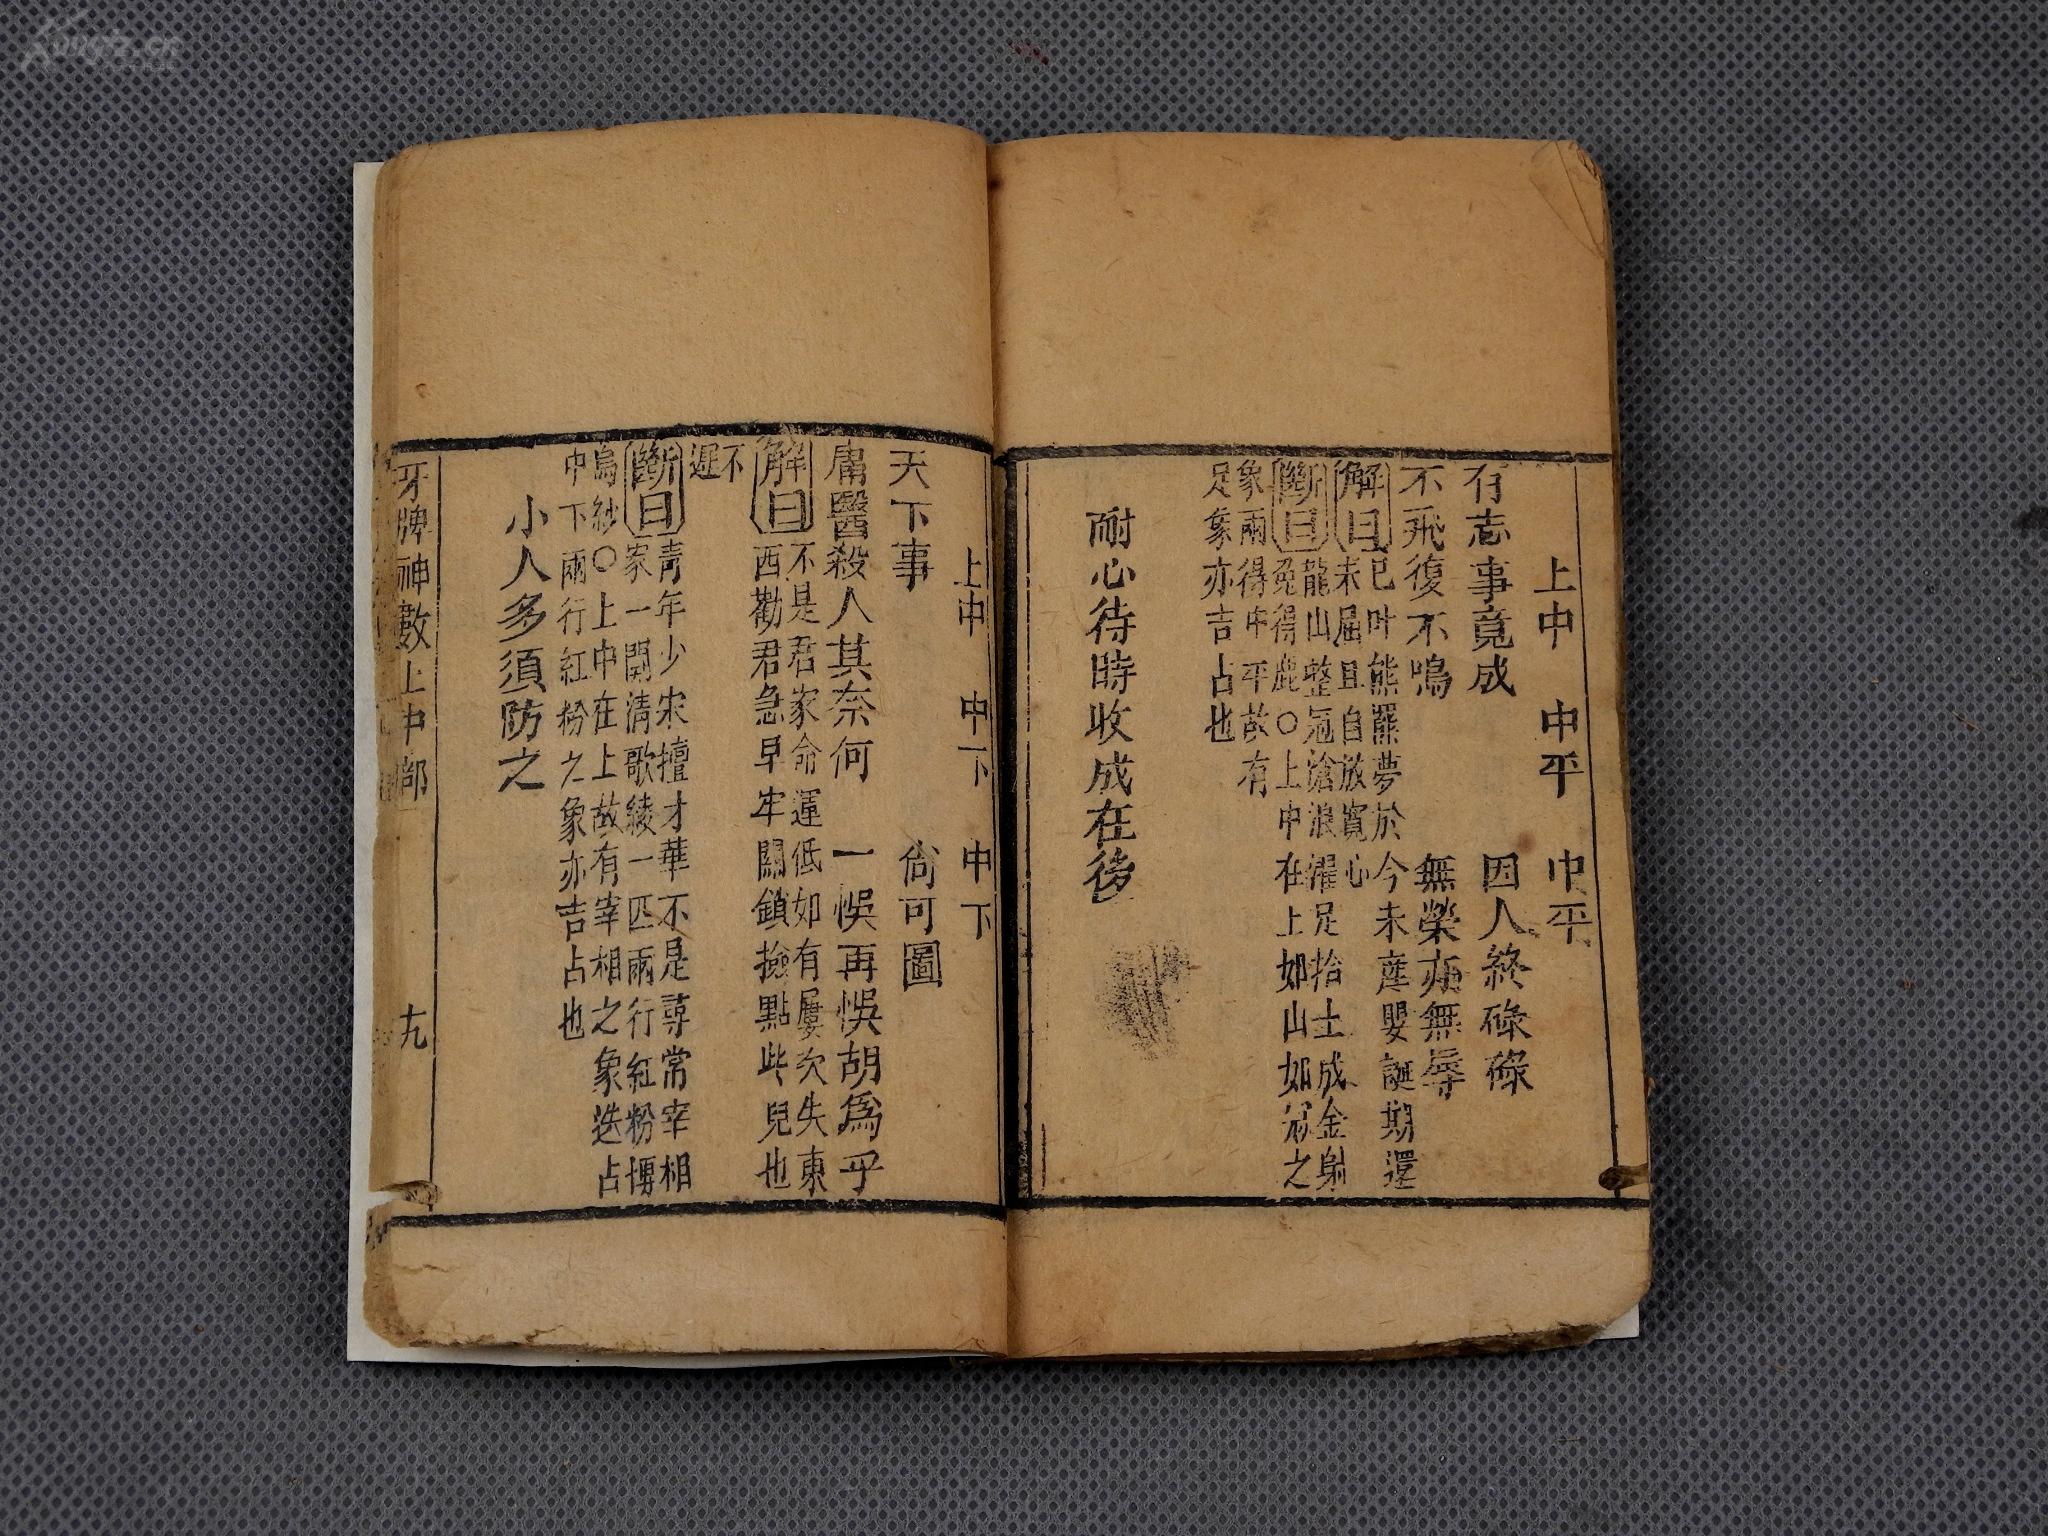 上中　中平　中平
有志事竟成　因人終碌碌
不飛復不鳴　無榮亦無辱
解曰
已叶熊羆夢於今未産嬰誕期還
未屆且自放寬心
斷曰
龍山整冠滄浪濯足拾土成金射
兔得鹿○上中在上如山如冠之
象兩得中平故有
足象亦吉占也
耐心待時收成在後
上中　中下　中下
天下事　尚可圖
庸醫殺人其奈何　一悞再悞胡為乎
解曰
不是君家命運低如有屢次失東
西勸君急早牢關鎖撿點此兒也
不
遲
斷曰
青年少宋擅才華不是尋常宰相
家一開清歌綾一匹兩行紅粉擁
烏紗○上中在上故有宰相之象迭占
中下兩行紅粉之象亦吉占也
小人多須防之
牙牌神數上中部　十九
Kongfz.cn